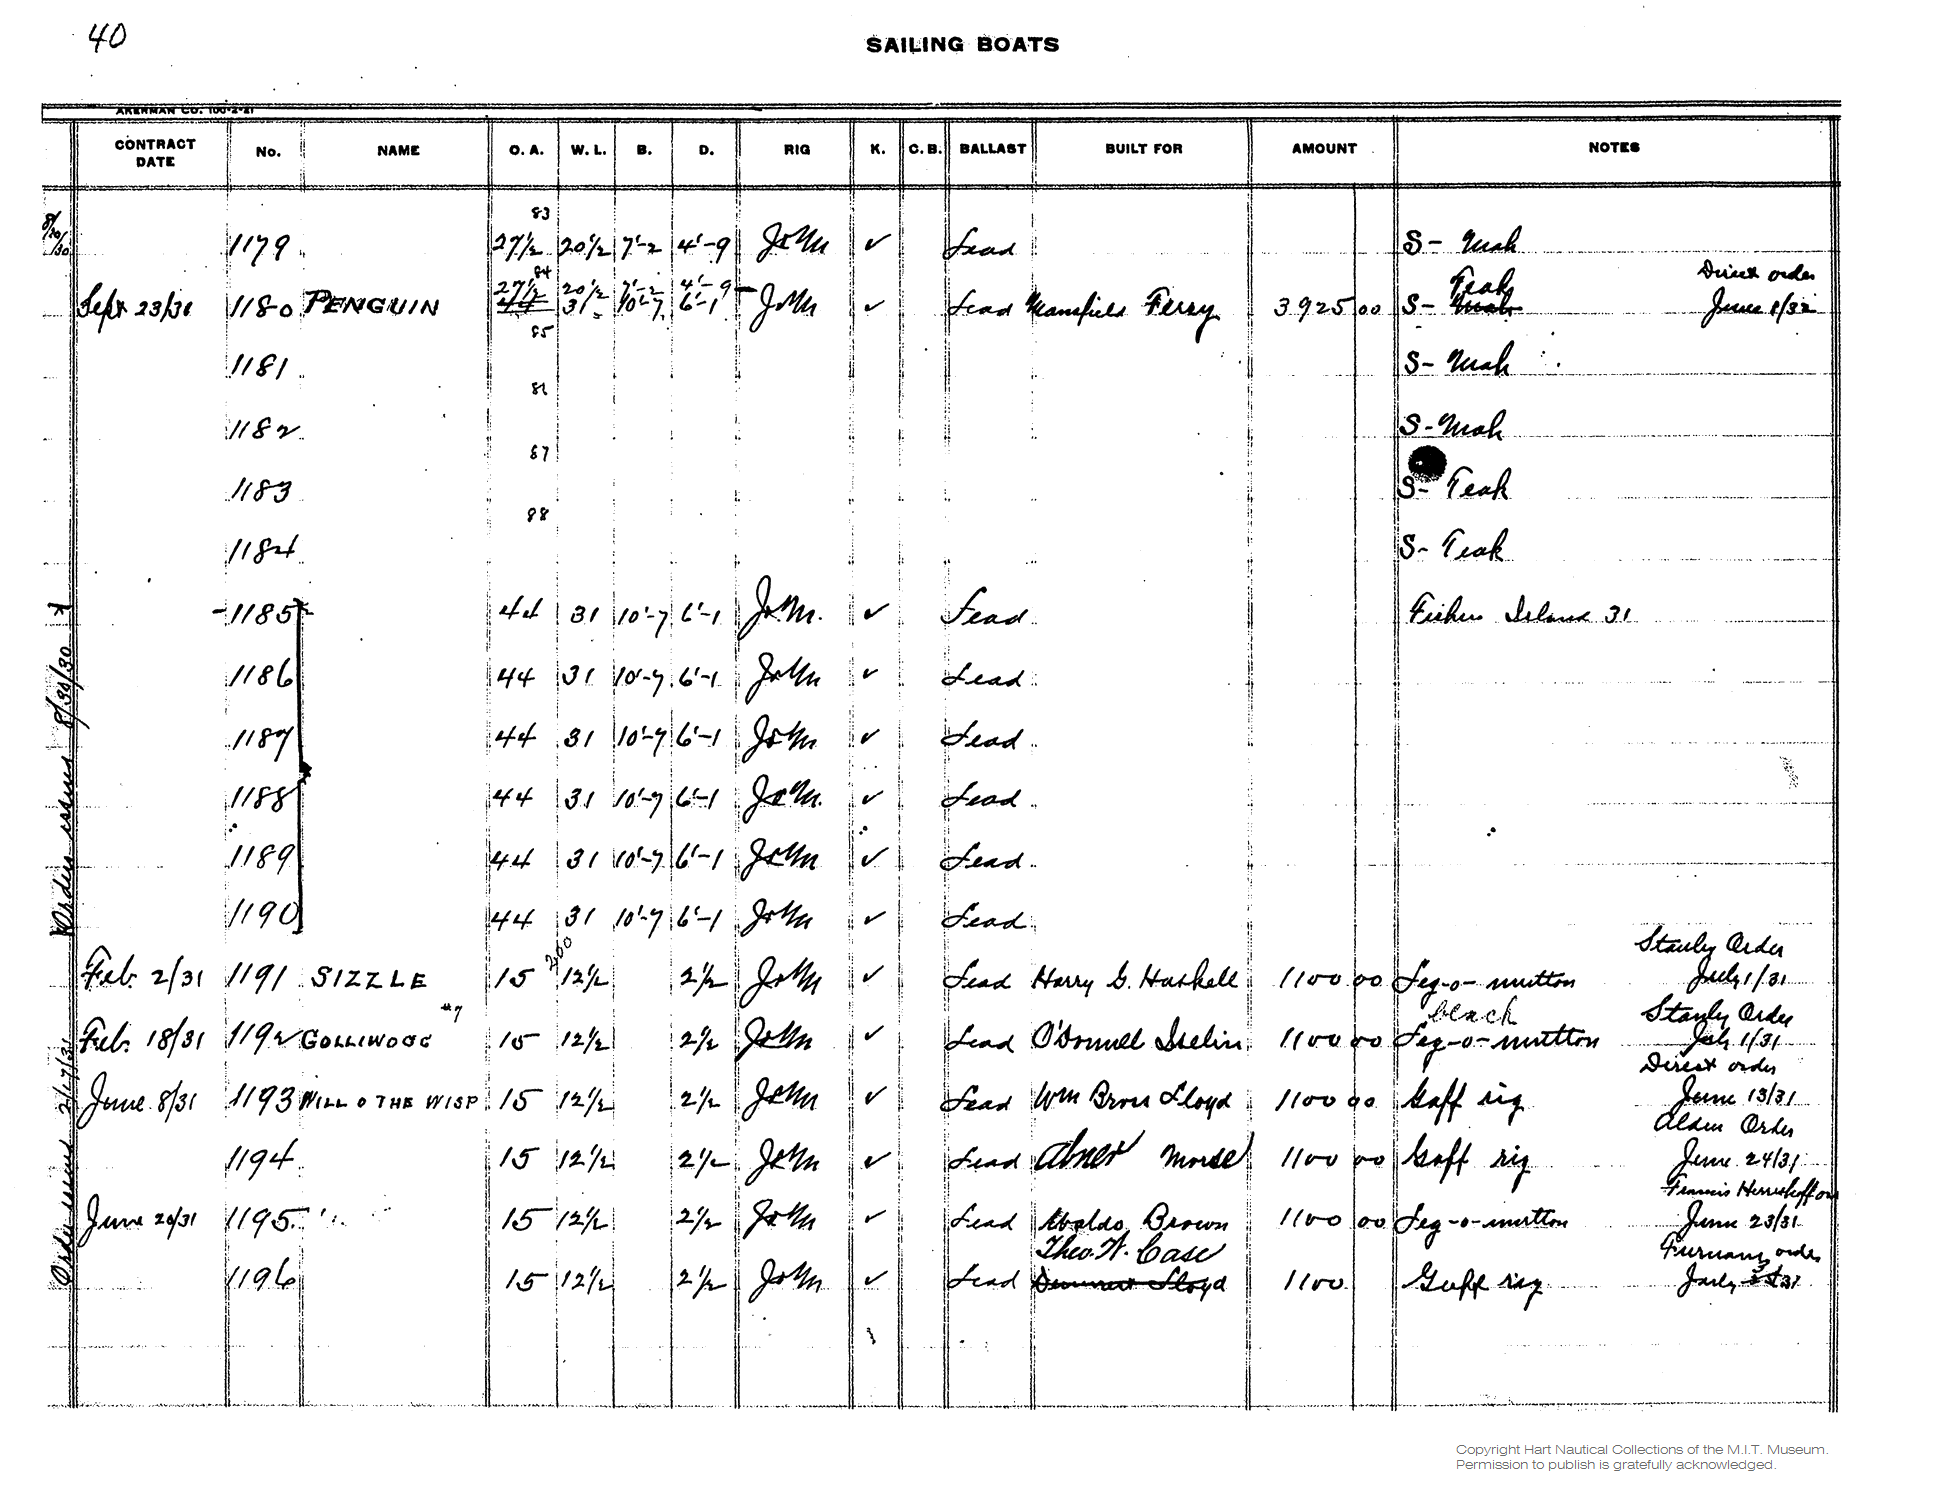 40
SAILING BOATS
AKERMAN CO. 100-2-21
CONTRACT DATE No. NAME O. A. W. L. B. D. RIG K. C. B. BALLAST BUILT FOR AMOUNT NOTES
83
8/20/30 1179 27½ 20½ 7'-2 4'-9 J & M ✓ Lead S- Mah
84
27½ 20½ 7'-2 4'-9 Teak Direct order
Sept 23/31 1180 PENGUIN 44 31 10'-7 6'-1 J & M ✓ Lead Mansfield Ferry 3925 00 S- Mah June 1/32
85
1181 S- Mah
1182 S- Mah
87
1183 S- Teak
88
1184 S- Teak
1185 44 31 10'-7 6'-1 J & M. ✓ Lead Fishers Island 31
1186 44 31 10'-7 6'-1 J & M ✓ Lead
1187 44 31 10'-7 6'-1 J & M ✓ Lead
1188 44 31 10'-7 6'-1 J & M. ✓ Lead
1189 44 31 10'-7 6'-1 J & M ✓ Lead
1190 44 31 10'-7 6'-1 J & M ✓ Lead
Orders issued 8/30/30
Stanley Order
Feb. 2/31 1191 SIZZLE 15 12½ 2½ J & M ✓ Lead Harry G. Haskell 1100 00 Leg-o-mutton July 1/31
#7 Stanly Order
Feb. 18/31 1192 GOLLIWOGG 15 12½ 2½ J & M ✓ Lead O'Donnell Iselin 1100 00 Leg-o-mutton July 1/31
Direct order
June 8/31 1193 WILL O THE WISP 15 12½ 2½ J & M ✓ Lead Wm Bross Lloyd 1100 00 Gaff rig June 13/31
Alden Order
1194 15 12½ 2½ J & M ✓ Lead Abner Morse 1100 00 Gaff rig June 24/31
Francis Herreshoff
June 20/31 1195 15 12½ 2½ J & M ✓ Lead Brown 1100 00 Leg-o-mutton June 23/31
Theo. W. Case Furnans order
1196 15 12½ 2½ J & M ✓ Lead Lloyd 1100 Gaff rig July 31
Order issued 2/17/31
Copyright Hart Nautical Collections of the M.I.T. Museum.
Permission to publish is gratefully acknowledged.